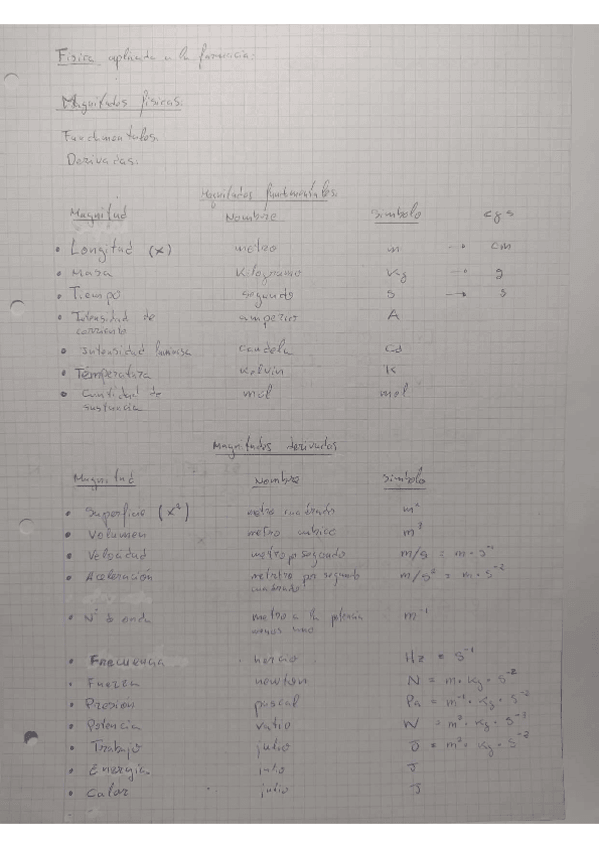 Física aplicada a la farmacia:
Magnitudes físicas:
Fundamentales:
Derivadas:
Magnitudes fundamentales:
Magnitud Nombre Símbolo cgs
• Longitud (x) metro m → cm
• Masa Kilogramo Kg → g
• Tiempo segundo s → s
• Intensidad de corriente amperios A
• Intensidad luminosa candela Cd
• Temperatura Kelvin K
• Cantidad de sustancia mol mol
Magnitudes derivadas
Magnitud Nombre Símbolo
• Superficie (x²) metro cuadrado m²
• Volumen metro cubico m³
• Velocidad metro por segundo m/s = m · s⁻¹
• Aceleración metro por segundo cuadrado m/s² = m · s⁻²
• Nº de onda metro a la potencia menos uno m⁻¹
• Frecuencia hercio Hz = s⁻¹
• Fuerza newton N = m · Kg · s⁻²
• Presión pascal Pa = m⁻¹ · Kg · s⁻²
• Potencia vatio W = m² · Kg · s⁻³
• Trabajo julio J = m² · Kg · s⁻²
• Energía julio J
• Calor julio J